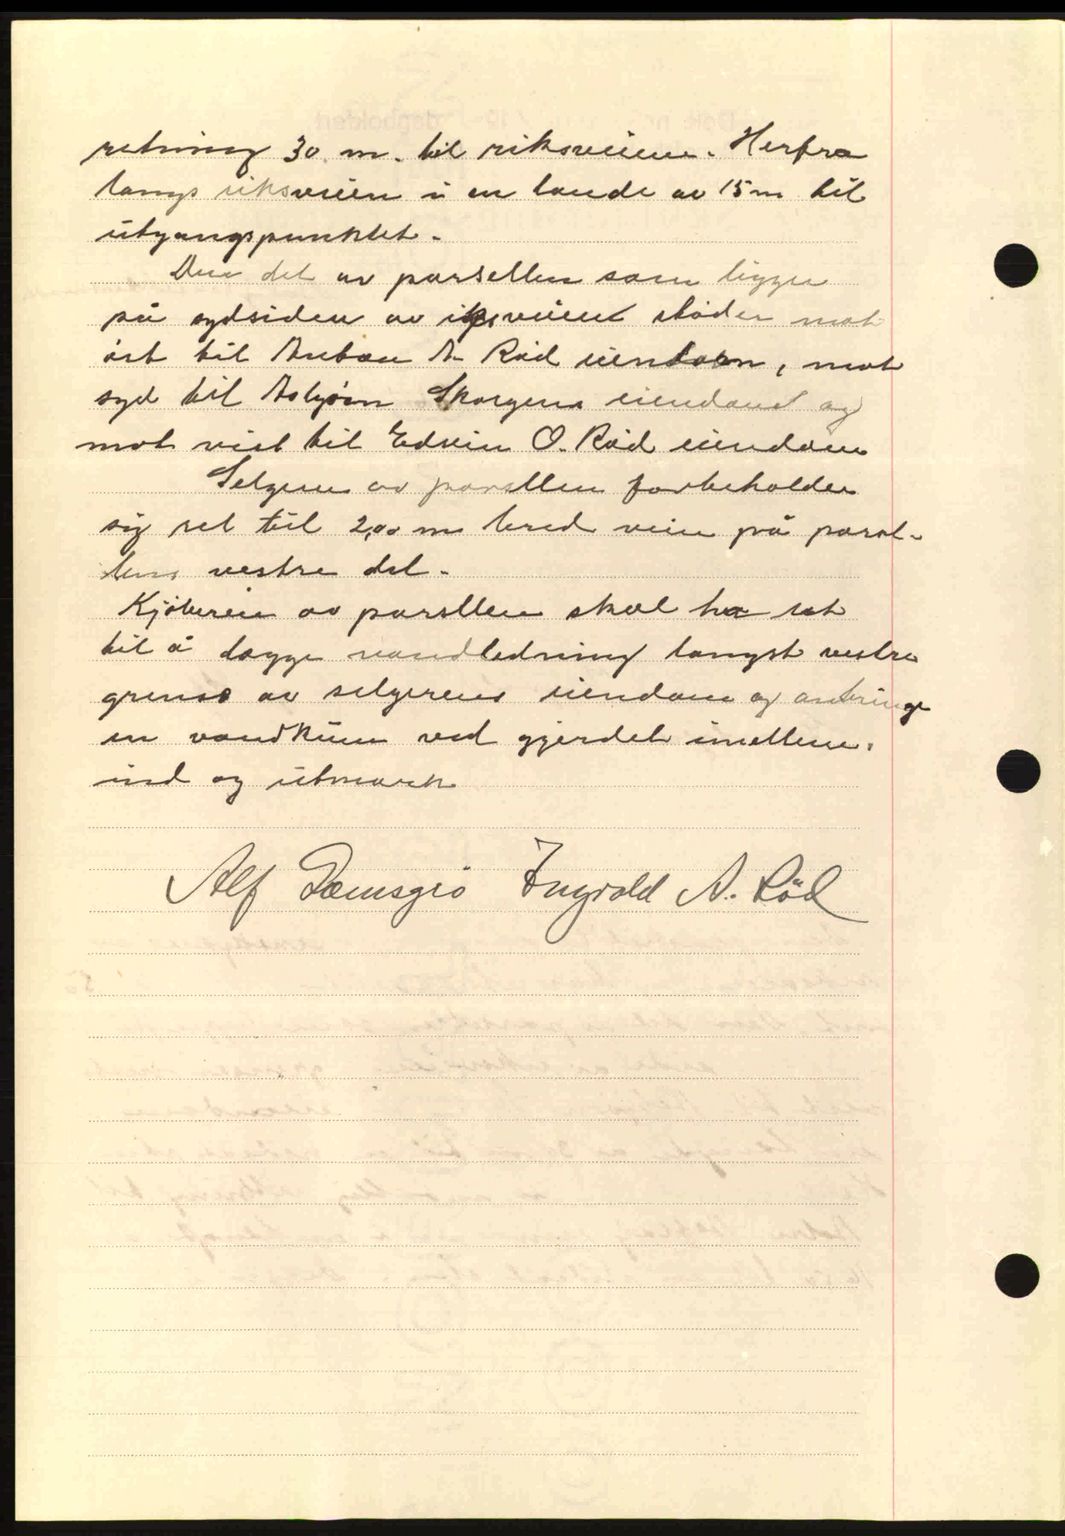 retning 30 m. til riksveiene. Herfra
langs riksveien i en lænde av 15 m til
utgangspunktet.
Den del av parsellen som ligger
på sydsiden av riksveien støder mot
øst til Anton A. Rød eiendom, mot
syd til Asbjørn Skorgens eiendom og
mot vest til Edvin O. Rød eiendom
Selgeren av parsellen forbeholder
sig ret til 2,00 m bred veie på parsel-
lens vestre del.
Kjøberen av parsellen skal ha ret
til å lægge vandledning langst vestre
grense av selgerens eiendom og anbringe
en vandkum ved gjerdet imellem.
ind og utmark
Alf Dæmsgjø Ingvald A. Rød